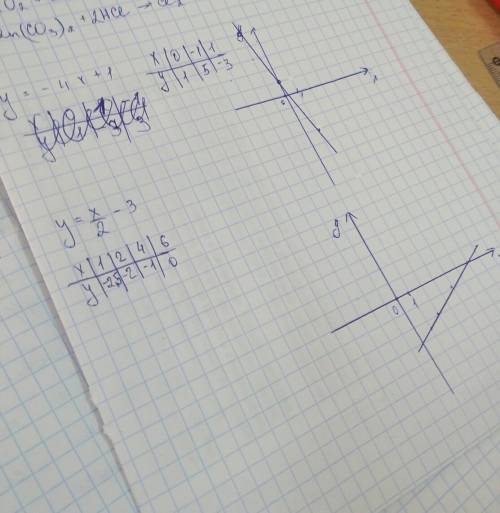 O₂
(CO₃)₂ + 2HCl →
y = -4x + 1
x | 0 | -1 | 1
y | 1 | 5 | -3
y
x
0
y = x/2 - 3
x | 1 | 2 | 4 | 6
y | -2,5 | -2 | -1 | 0
y
0 1